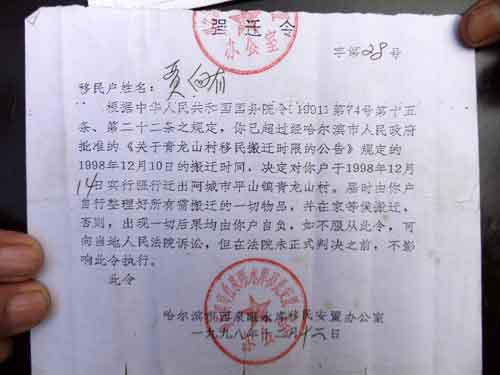 强迁令
字第28号
移民户姓名：贾
根据中华人民共和国国务院令(1991)第74号第十五
条、第二十二条之规定，你已超过经哈尔滨市人民政府
批准的《关于青龙山村移民搬迁时限的公告》规定的
1998年12月10日的搬迁时间，决定对你户于1998年12月
14日实行强行迁出阿城市平山镇青龙山村。届时由你户
自行整理好所有需搬迁的一切物品，并在家等候搬迁，
否则，出现一切后果均由你户自负，如不服从此令，可
向当地人民法院诉讼，但在法院未正式判决之前，不影
响此令执行。
此令
哈尔滨市西泉眼水库移民安置办公室
一九九八年十二月十二日
办公室